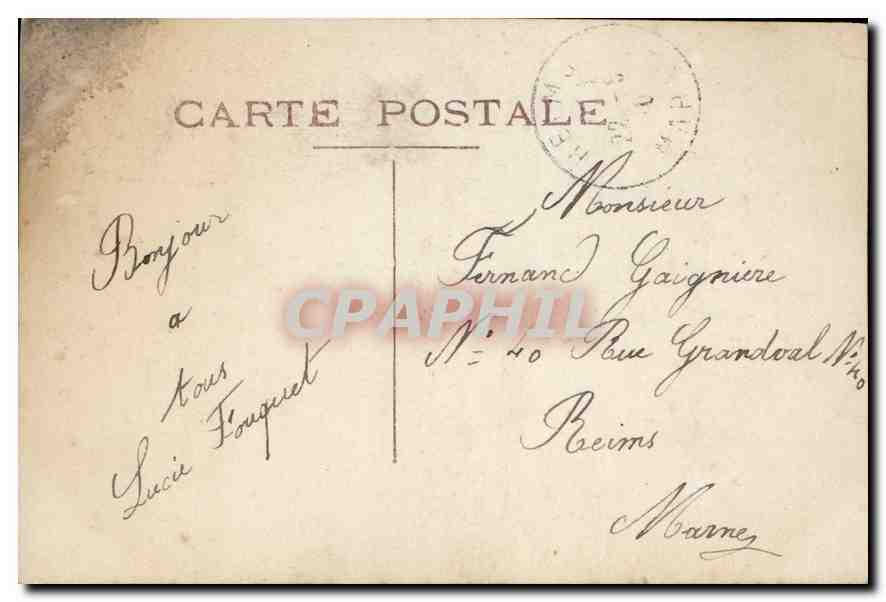 CARTE POSTALE
REIMS
MAR
Bonjour
a
tous
Lucie Fouquet
Monsieur
Fernand Gaigniere
N° 40 Rue Grandval N° 40
Reims
Marne
CPAPHIL